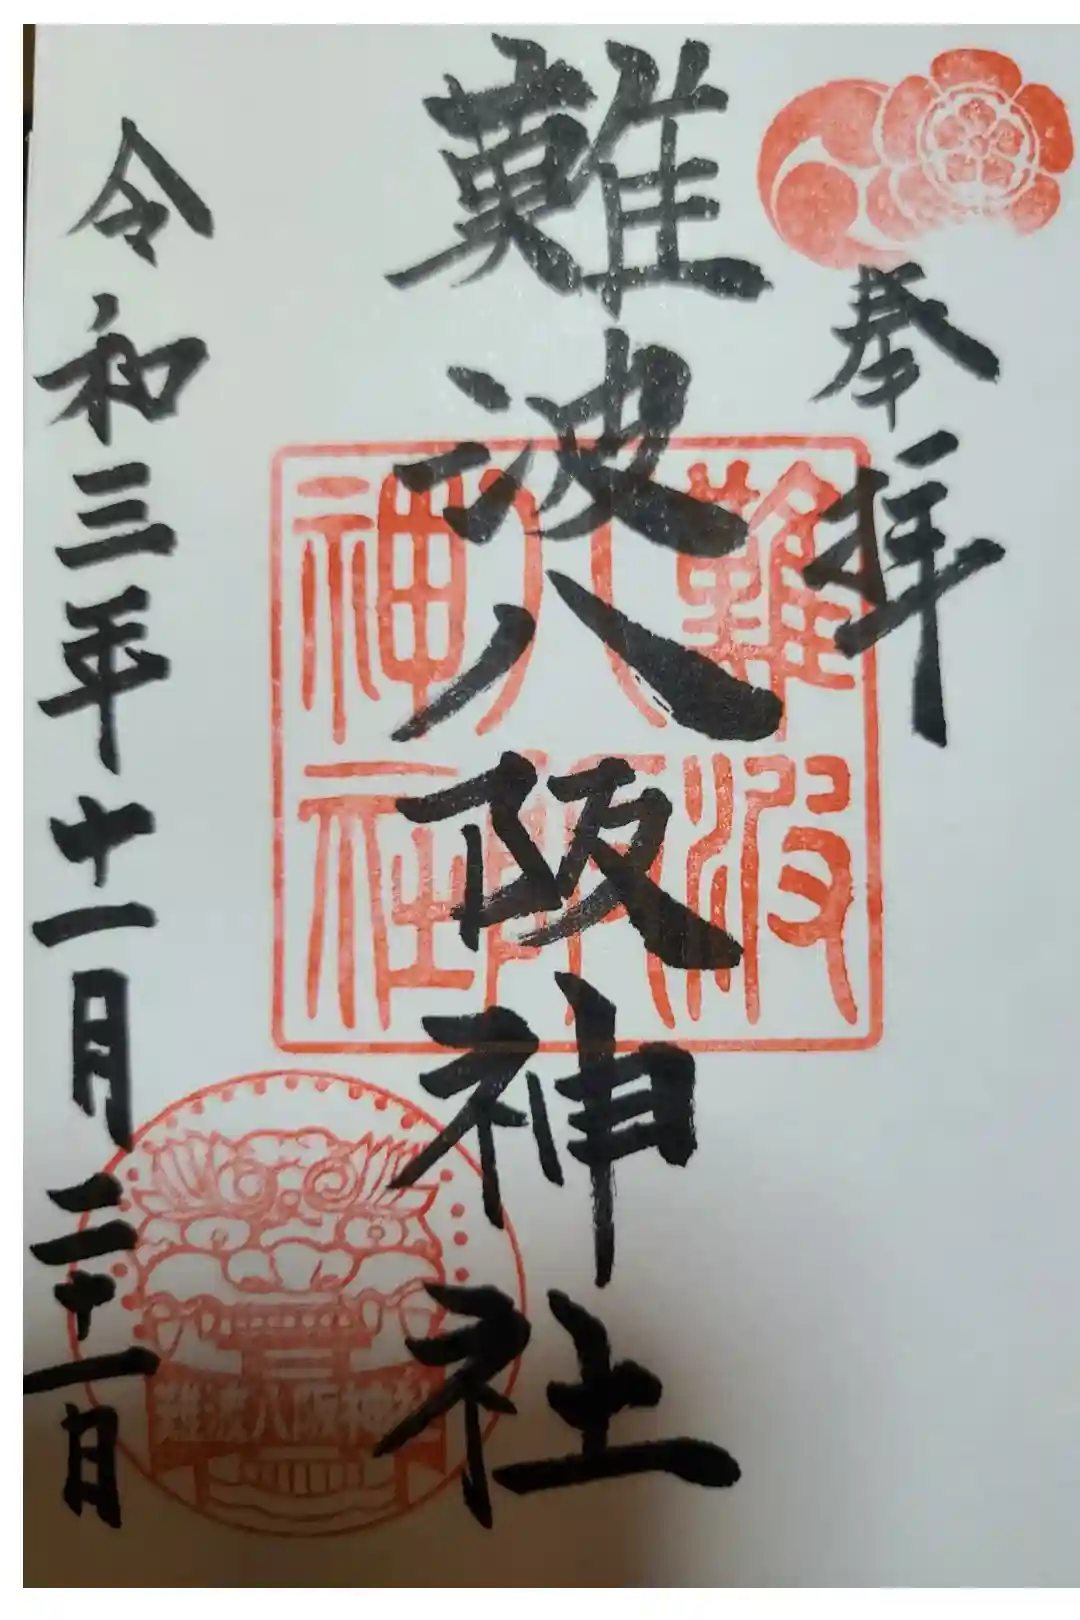 奉拝
難波八阪神社
難波
八阪
神社
令和三年十一月二十一日
難波八阪神社